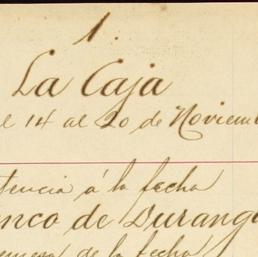 1.
La Caja
14 al 20 de Noviem
tencia á la fecha
nco de Durang
de la fecha